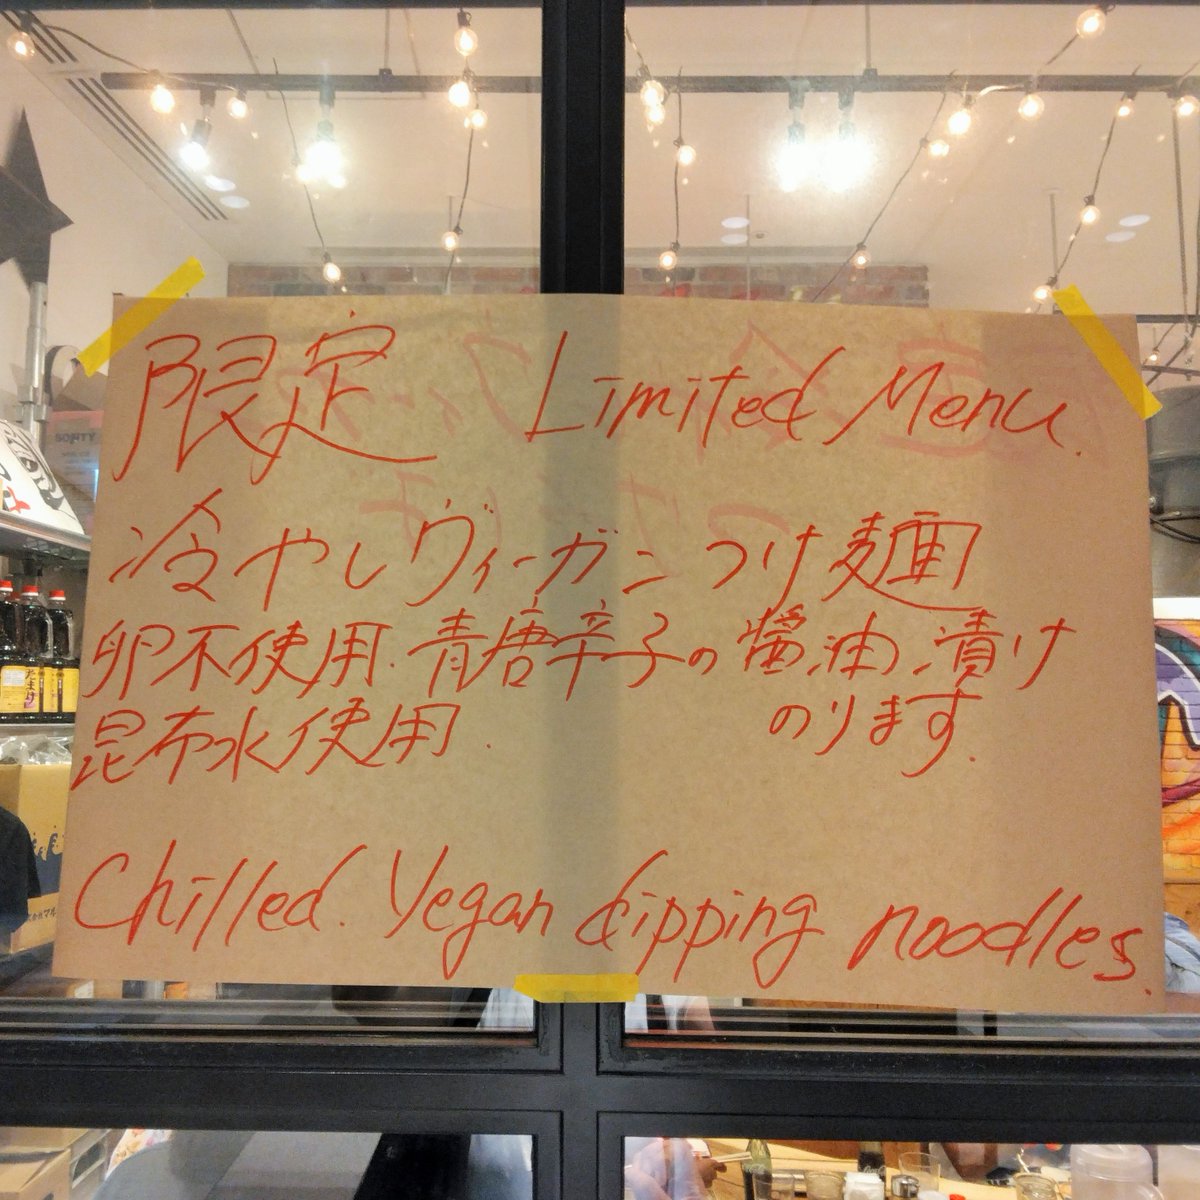 限定 Limited Menu.
冷やしヴィーガンつけ麺
卵不使用.青唐辛子の醤油漬け
のります.
昆布水使用.
Chilled. Vegan dipping noodles.